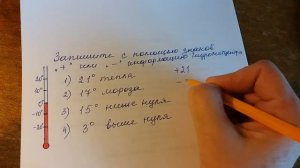 Запишите с помощью знаков
„+" или „–" информацию гидрометцентра
1) 21° тепла +21
2) 17° мороза –
3) 15° ниже нуля
4) 3° выше нуля
20°
10°
0°
-10°
-20°